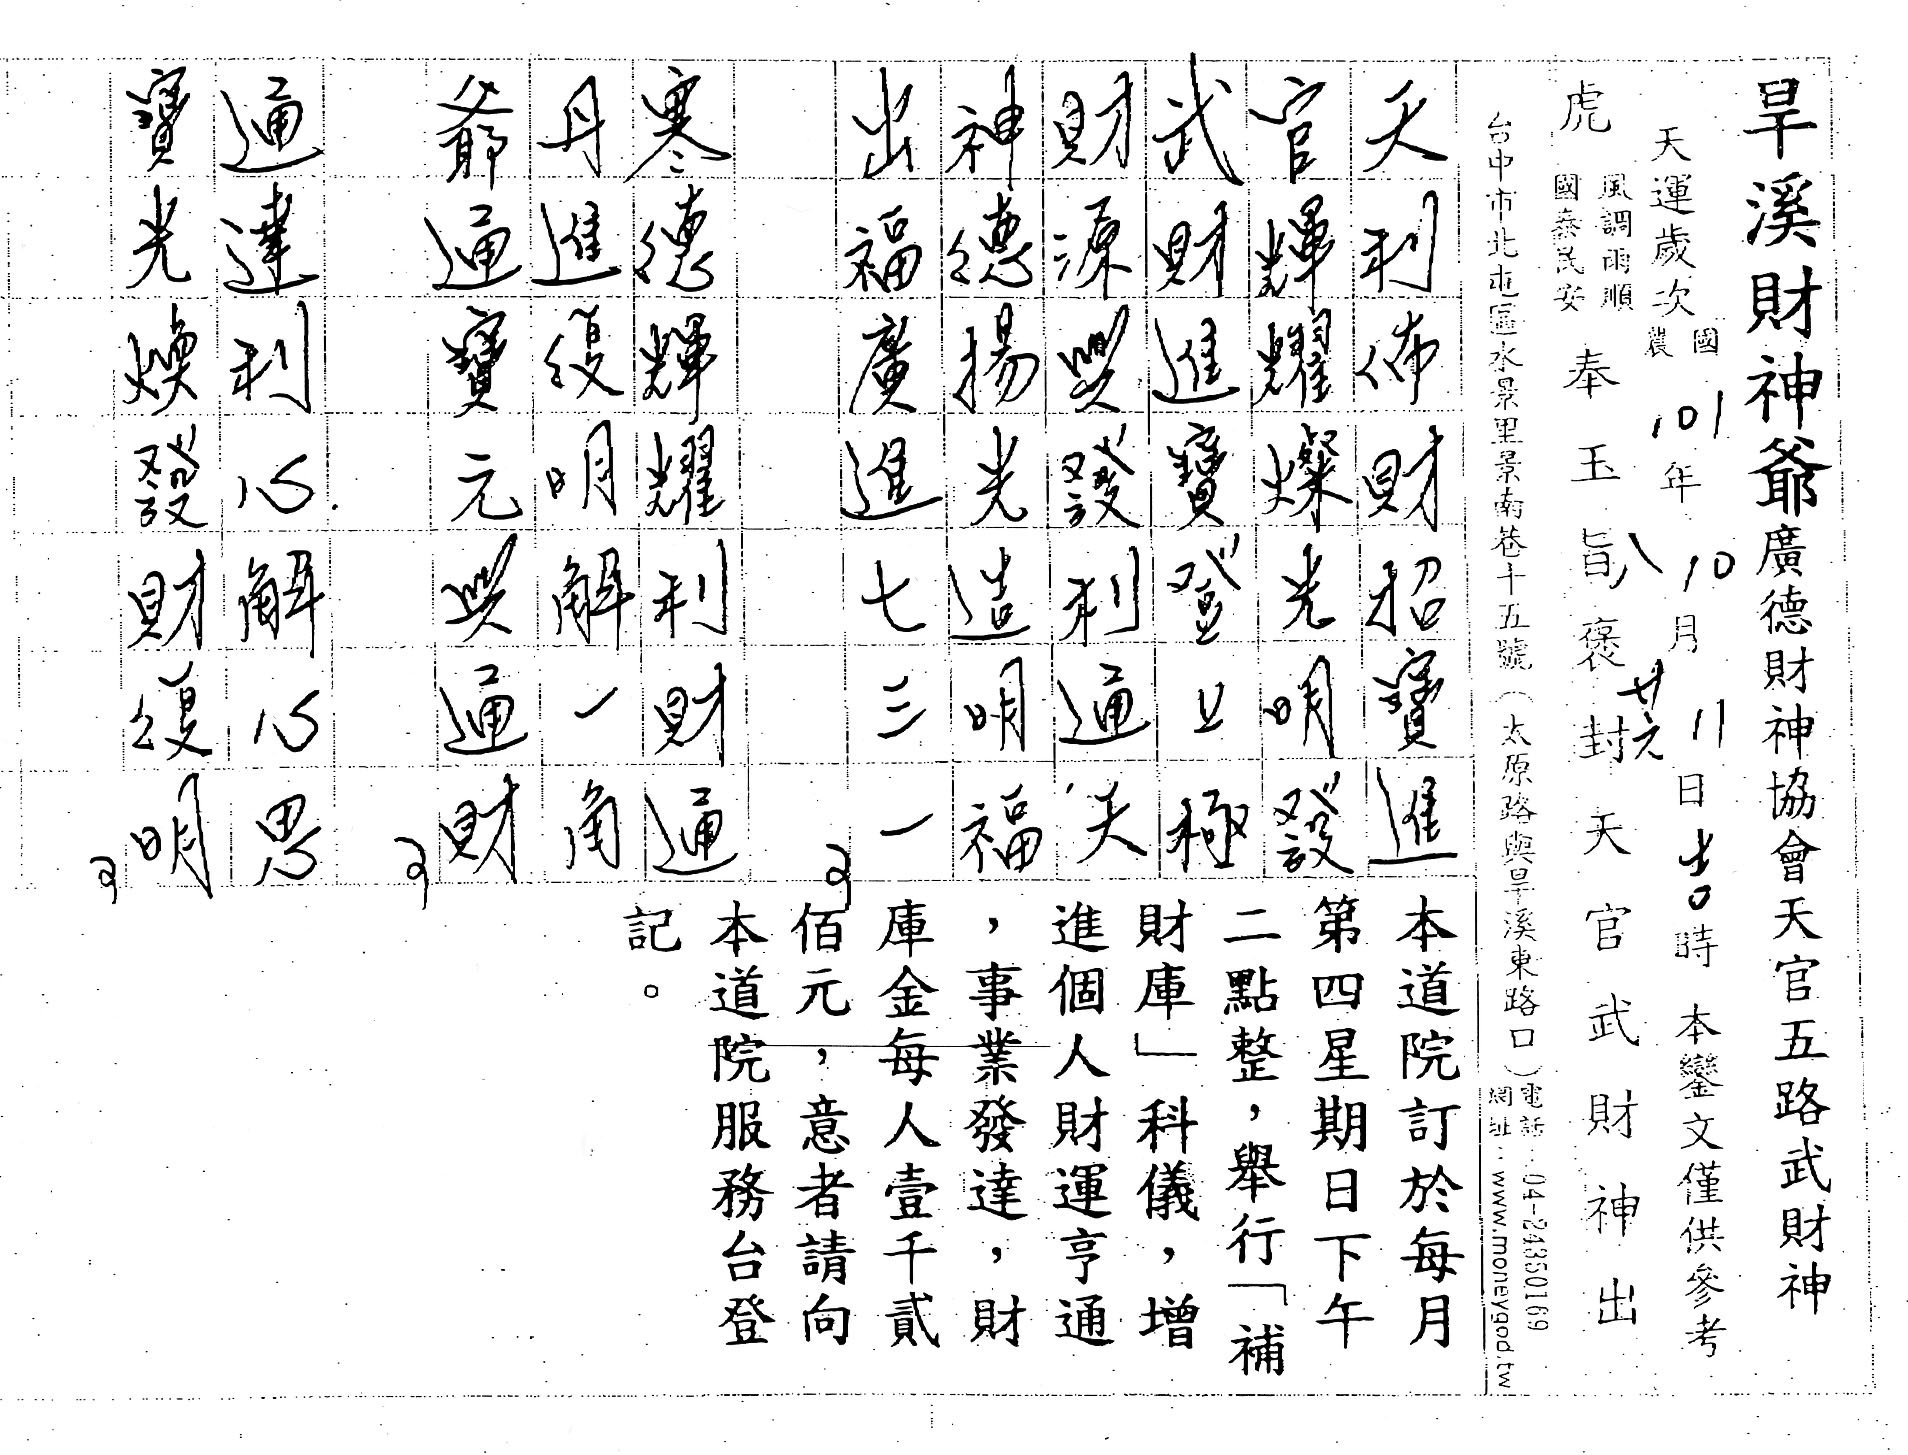 旱溪財神爺廣德財神協會天官五路武財神
天運歲次 國 農 101年 10 八月 11 廿六日 吉時 本鑾文僅供參考
風調雨順
國泰民安
虎 奉玉旨褒封天官武財神出
台中市北屯區水景里景南巷十五號（太原路與旱溪東路口）電話：04-24350169
網址：www.moneygod.tw
天利佈財招寶進
官輝耀燦光明發
武財進寶登上極
財源興發利通天
神德揚光造明福
出福廣進七三一
寒德輝耀利財通
丹進復明解一角
爺通寶元興通財
通達利心解心思
寶光煥發財復明
本道院訂於每月
第四星期日下午
二點整，舉行「補
財庫」科儀，增
進個人財運亨通
，事業發達，財
庫金每人壹千貳
佰元，意者請向
本道院服務台登
記。